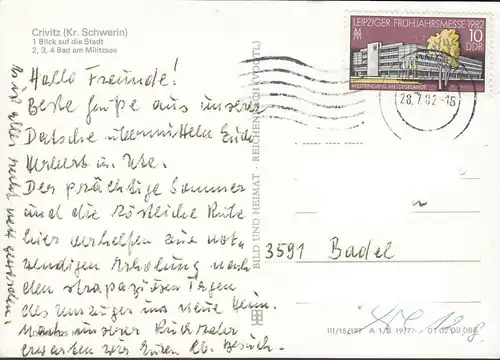 Crivitz (Kr. Schwerin)
1 Blick auf die Stadt
2, 3, 4 Bad am Militzsee
LEIPZIGER FRÜHJAHRSMESSE 1982
10
DDR
WESTEINGANG MESSEGELÄNDE
28.7.82-16
Hallo Freunde!
Beste Grüße aus unserer
Datsche übermitteln Euch
Herbert u. Ute.
Der prächtige Sommer
und die köstliche Ruhe
hier verhelfen zur not-
wendigen Erholung nach
den strapaziösen Tagen
des Umzuges ins neue Heim.
Nach unserer Rückkehr
erwarten wir Euren lb. Besuch.
Es ist alles recht nett geworden!
BILD UND HEIMAT · REICHENBACH (VOGTL)
3591 Badel
III/18/197 A 1/B 197/77 01 02 09 086